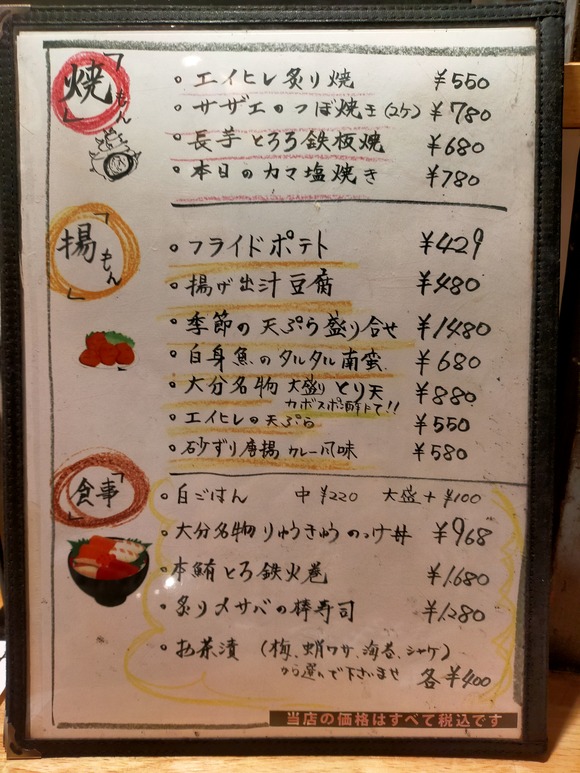 「焼もん」
・エイヒレ炙り焼 ¥550
・サザエのつぼ焼き(2ケ) ¥780
・長芋とろろ鉄板焼 ¥680
・本日のカマ塩焼き ¥780
「揚もん」
・フライドポテト ¥429
・揚げ出汁豆腐 ¥480
・季節の天ぷら盛り合せ ¥1480
・白身魚のタルタル南蛮 ¥680
・大分名物 大盛りとり天 ¥880
カボスポン酢にて!!
・エイヒレの天ぷら ¥550
・砂ずり唐揚 カレー風味 ¥580
「食事」
・白ごはん 中 ¥220 大盛+¥100
・大分名物りゅうきゅうのっけ丼 ¥968
・本鮪とろ鉄火巻 ¥1,680
・炙り〆サバの棒寿司 ¥1,280
・お茶漬 (梅、蛸ワサ、海苔、シャケ)
から選んで下さいませ 各¥400
当店の価格はすべて税込です